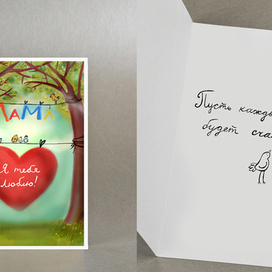 МАМА
Я тебя
люблю!
Пусть кажды
будет сча